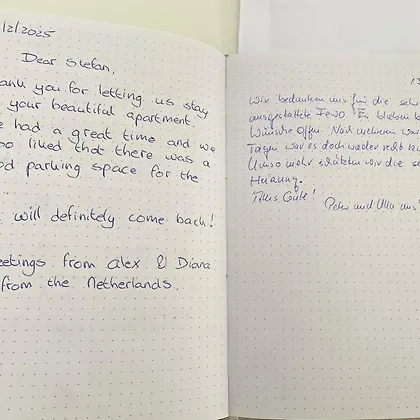 /2/2025
Dear Stefan,
ank you for letting us stay
your beautiful apartment.
e had a great time and we
oo liked that there was a
od parking space for the
will definitely come back!
eetings from Alex & Diana
from the Netherlands.
Wir bedanken uns für die
ausgestattete Fewo. Es blieben
Wünsche offen. Nach mehreren
Tagen war es doch wieder recht
Umso mehr schätzten wir die
Heizung.
Alles Gute!
Peter und Ulla aus